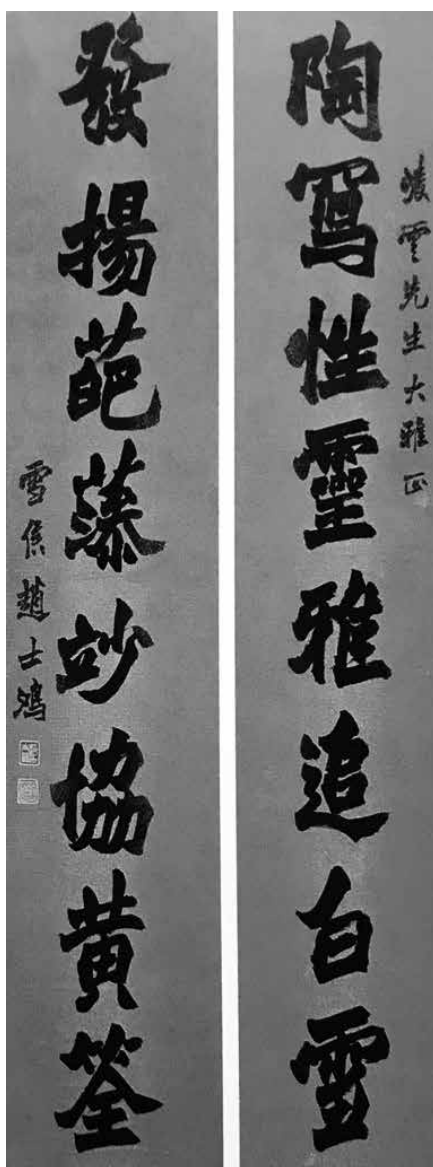 陶寫性靈雅追白雪
雲先生大雅正
發揚葩藻竗協黃筌
雪侯趙士鴻